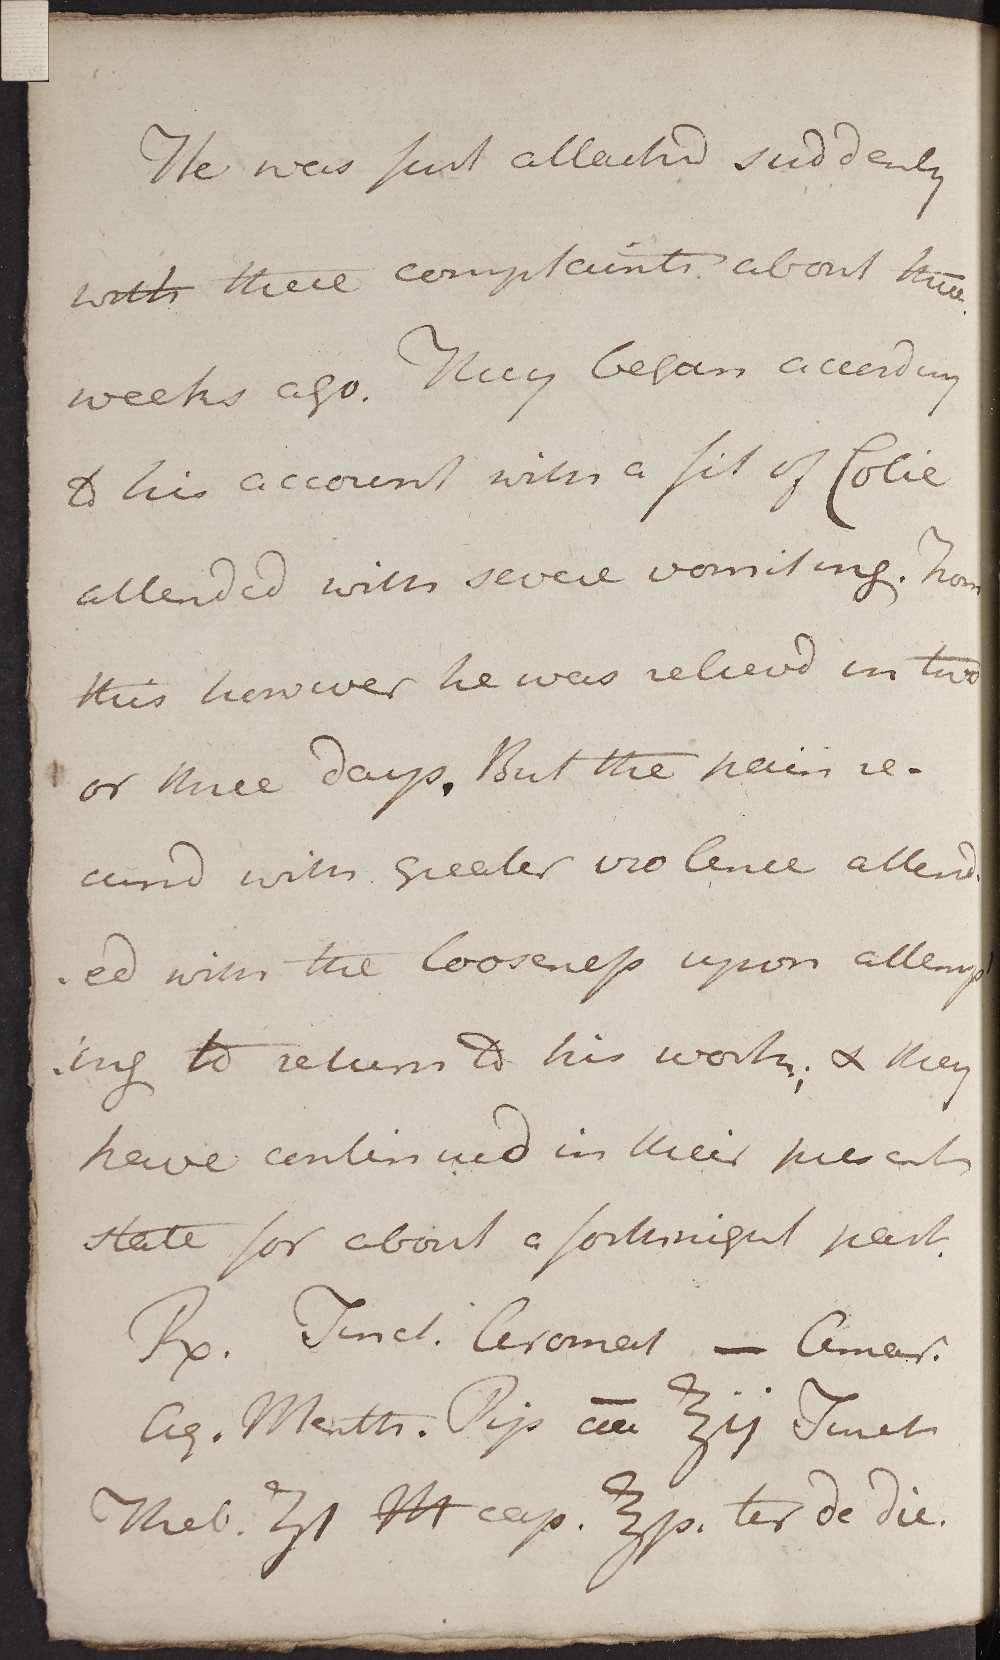 He was first attack'd suddenly
with these complaints about three
weeks ago. They began according
to his account with a fit of Colic
attended with severe vomiting. From
this however he was reliev'd in two
or three days. But the pain re-
curr'd with greater violence attend-
-ed with the looseness upon attempt
-ing to return to his work; & they
have continued in their present
state for about a fortnight past.
Rx. Tinct. Aromat — Amar.
Aq. Menth. Pip aa ℥ij Tinct
Theb. ʒi M cap. ℥ss. ter de die.